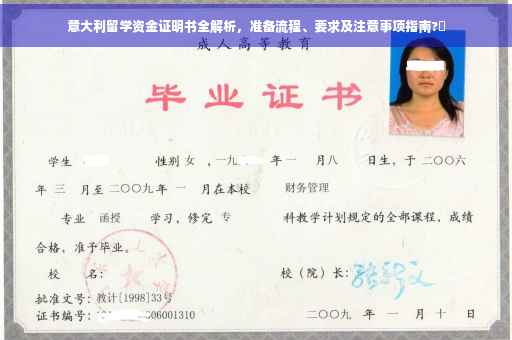 意大利留学资金证明书全解析，准备流程、要求及注意事项指南?
成人高等教育
毕业证书
学生 性别 女 ，一九 年 一 月八 日生，于 二〇〇六
年 三 月至 二〇〇九 年 一 月在本校 财务管理
专业 函授 学习，修完 专 科教学计划规定的全部课程，成绩
合格，准予毕业。
校 名： 校（院）长：
批准文号：教计[1998]33号
证书编号： 06001310 二〇〇九 年 一 月 十 日